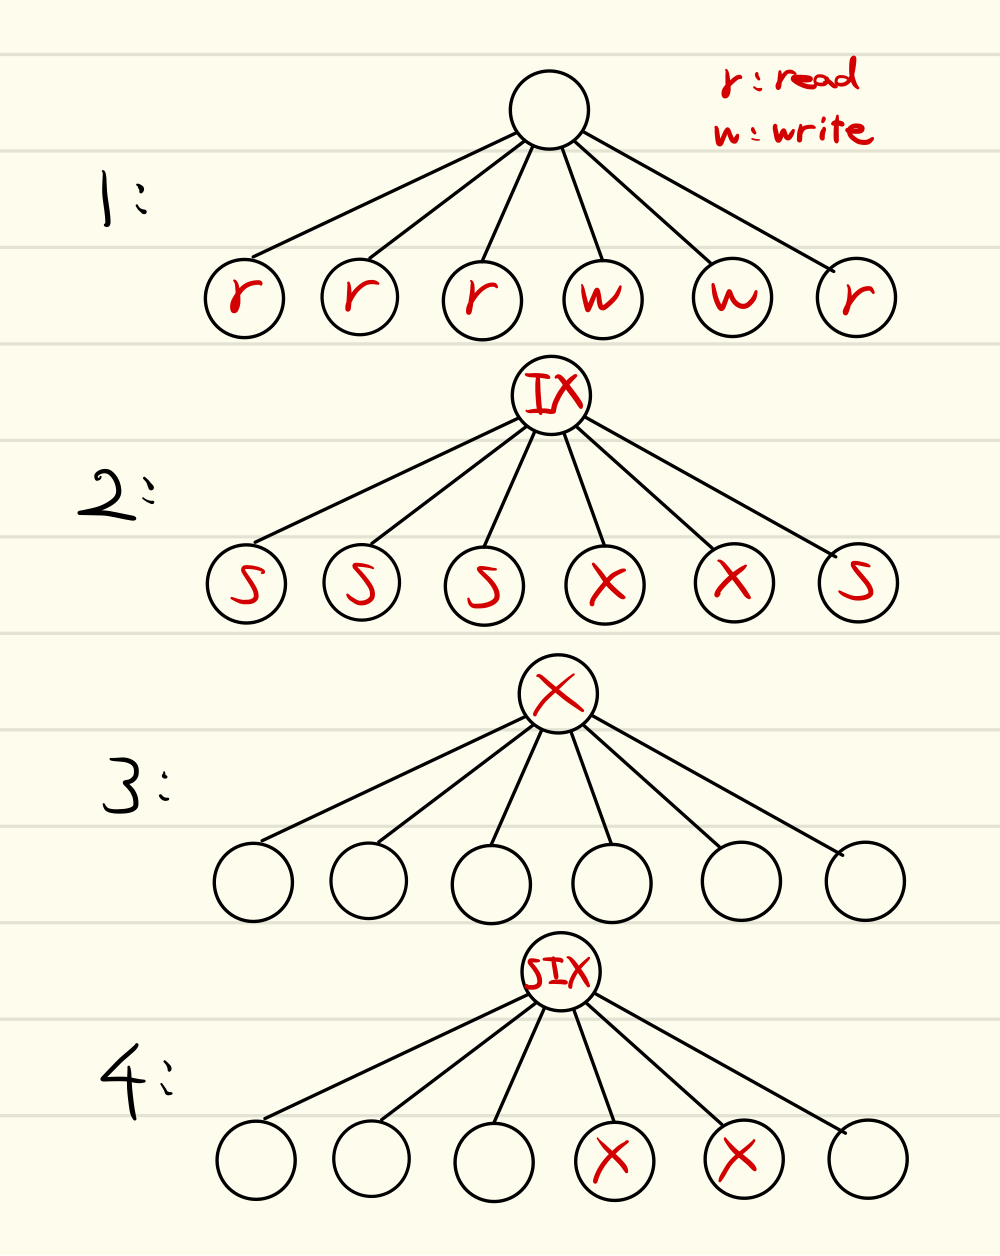 r: read
w: write
1:
r r r w w r
IX
2:
S S S X X S
X
3:
SIX
4:
X X